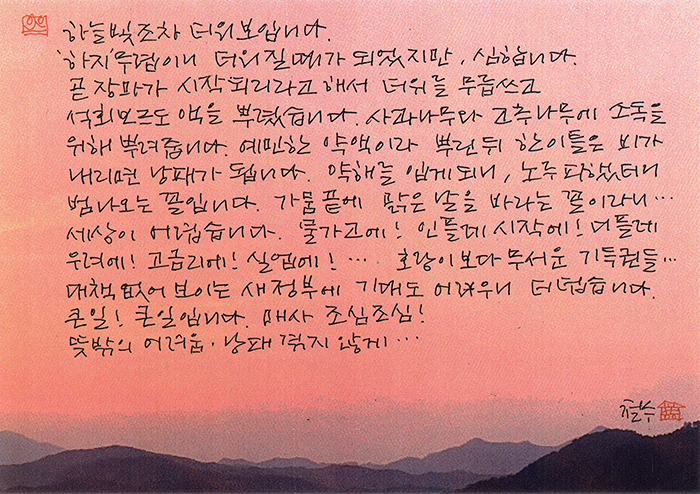 하늘빛조차 더워보입니다.
'하지'무렵이니 더워질때가 되었지만, 심합니다.
곧 장마가 시작되리라고 해서 더위를 무릅쓰고
석회보르도액을 뿌렸습니다. 사과나무와 고추나무에 소독을
위해 뿌려줍니다. 예민한 약액이라 뿌린뒤 한이틀은 비가
내리면 낭패가 됩니다. 약해를 입게되니, 노루 피했더니
범나오는 꼴입니다. 가뭄끝에 맑은 날을 바라는 꼴이라니…
세상이 어렵습니다. 물가고에! 인플레 시작에! 디플레
우려에! 고금리에! 실업에! … 호랑이보다 무서운 기득권들…
대책없어 보이는 새정부에 기대도 어려우니 더 덥습니다.
큰일! 큰일입니다. 매사 조심조심!
뜻밖의 어려움·낭패 겪지 않게…
철수